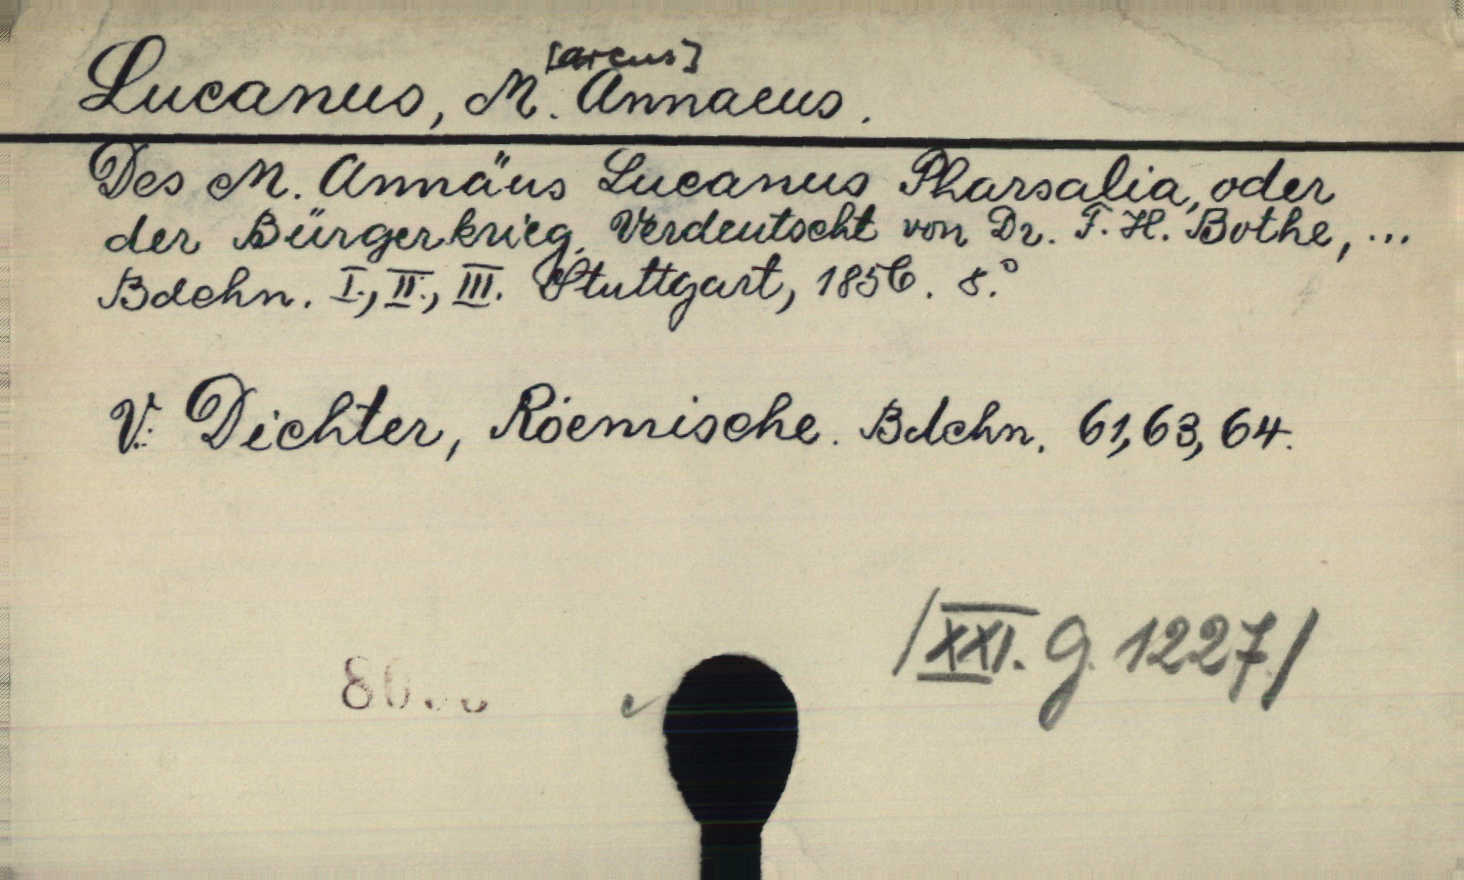 Lucanus, M.[arcus] Annaeus.
Des M. Annäus Lucanus Pharsalia, oder
der Bürgerkrieg. Verdeutscht von Dr. F. H. Bothe, ...
Bdchn. I., II., III. Stuttgart, 1856. 8.°
V. Dichter, Röemische. Bdchn. 61, 63, 64.
/XXI. g. 1227./